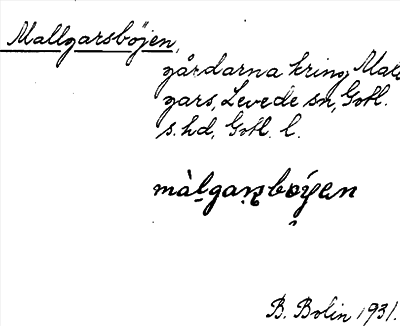 Mallgarsböjen,
gårdarna kring Mall
gars, Levede sn, Gotl.
s. hd, Gotl. l.
màl̠gaṇsbǿyen
B. Bolin 1931.